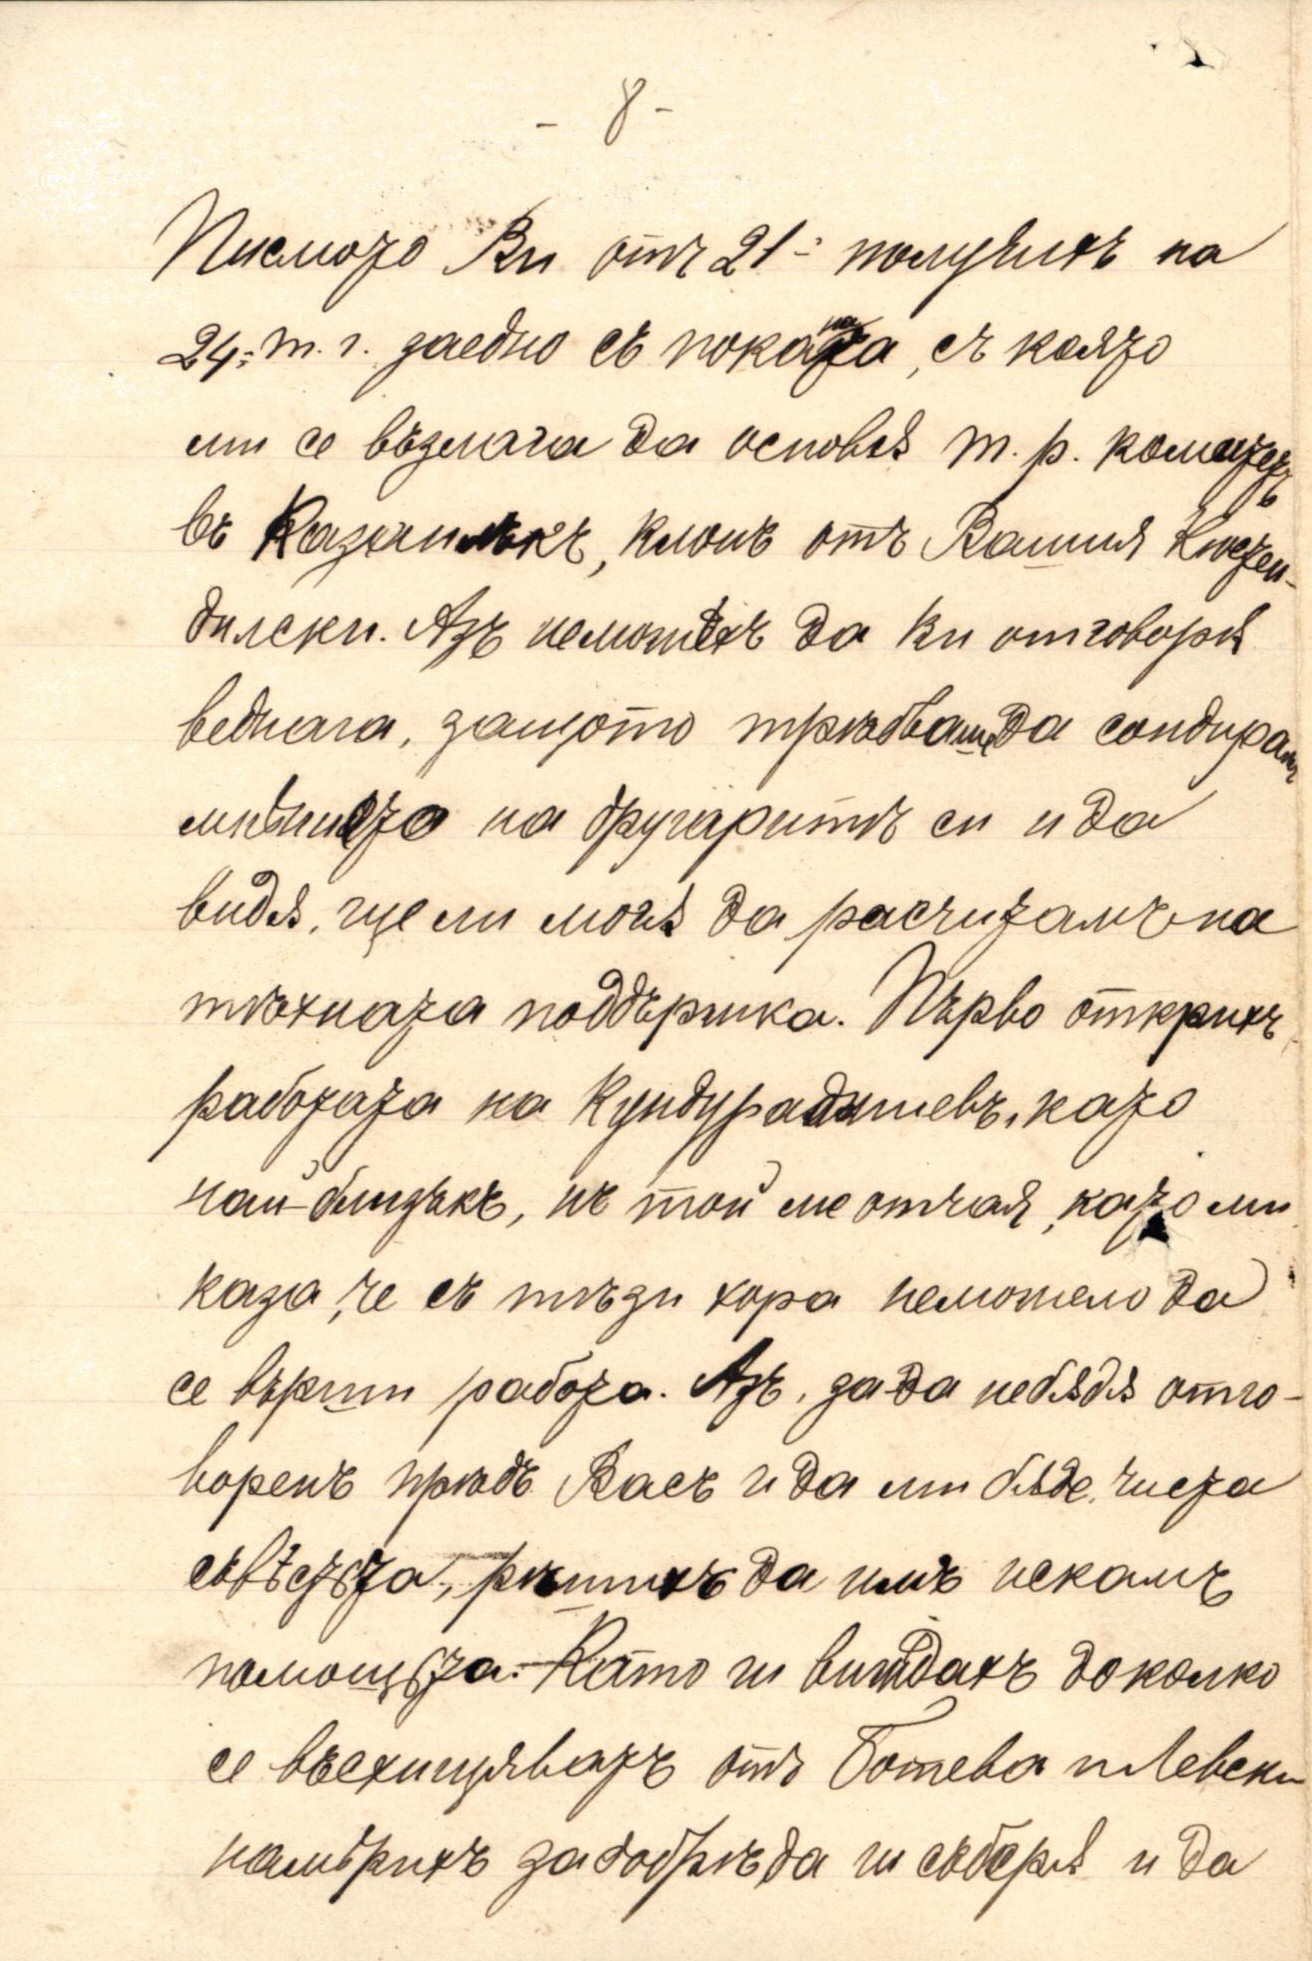 - 8 -
Писмото Ви отъ 21-й получихъ на
24-й т. г. заедно съ поканата, съ която
ми се възлага да основѫ т. р. комитетъ
въ Казанлъкъ, клонъ отъ Вашия Кюстен-
дилски. Азъ неможахъ да Ви отговорѫ
веднага, защото трѣбваше да сондирамъ
мнѣнието на другаритѣ си и да
видѫ, ще ли могѫ да расчитамъ на
тѣхната поддържка. Първо открихъ
работата на Кундураджиевъ, като
най-близъкъ, нъ той ме отчая, като ми
каза, че съ тѣзи хора неможело да
се върши работа. Азъ, за да не бѫдѫ отго-
воренъ прѣдъ Васъ и да ми бѫде чиста
съвѣстьта, рѣшихъ да имъ искамъ
помощьта. Като ги виждахъ доколко
се въсхищаватъ отъ Ботева и Левски
намѣрихъ за добрѣ да ги съберѫ и да